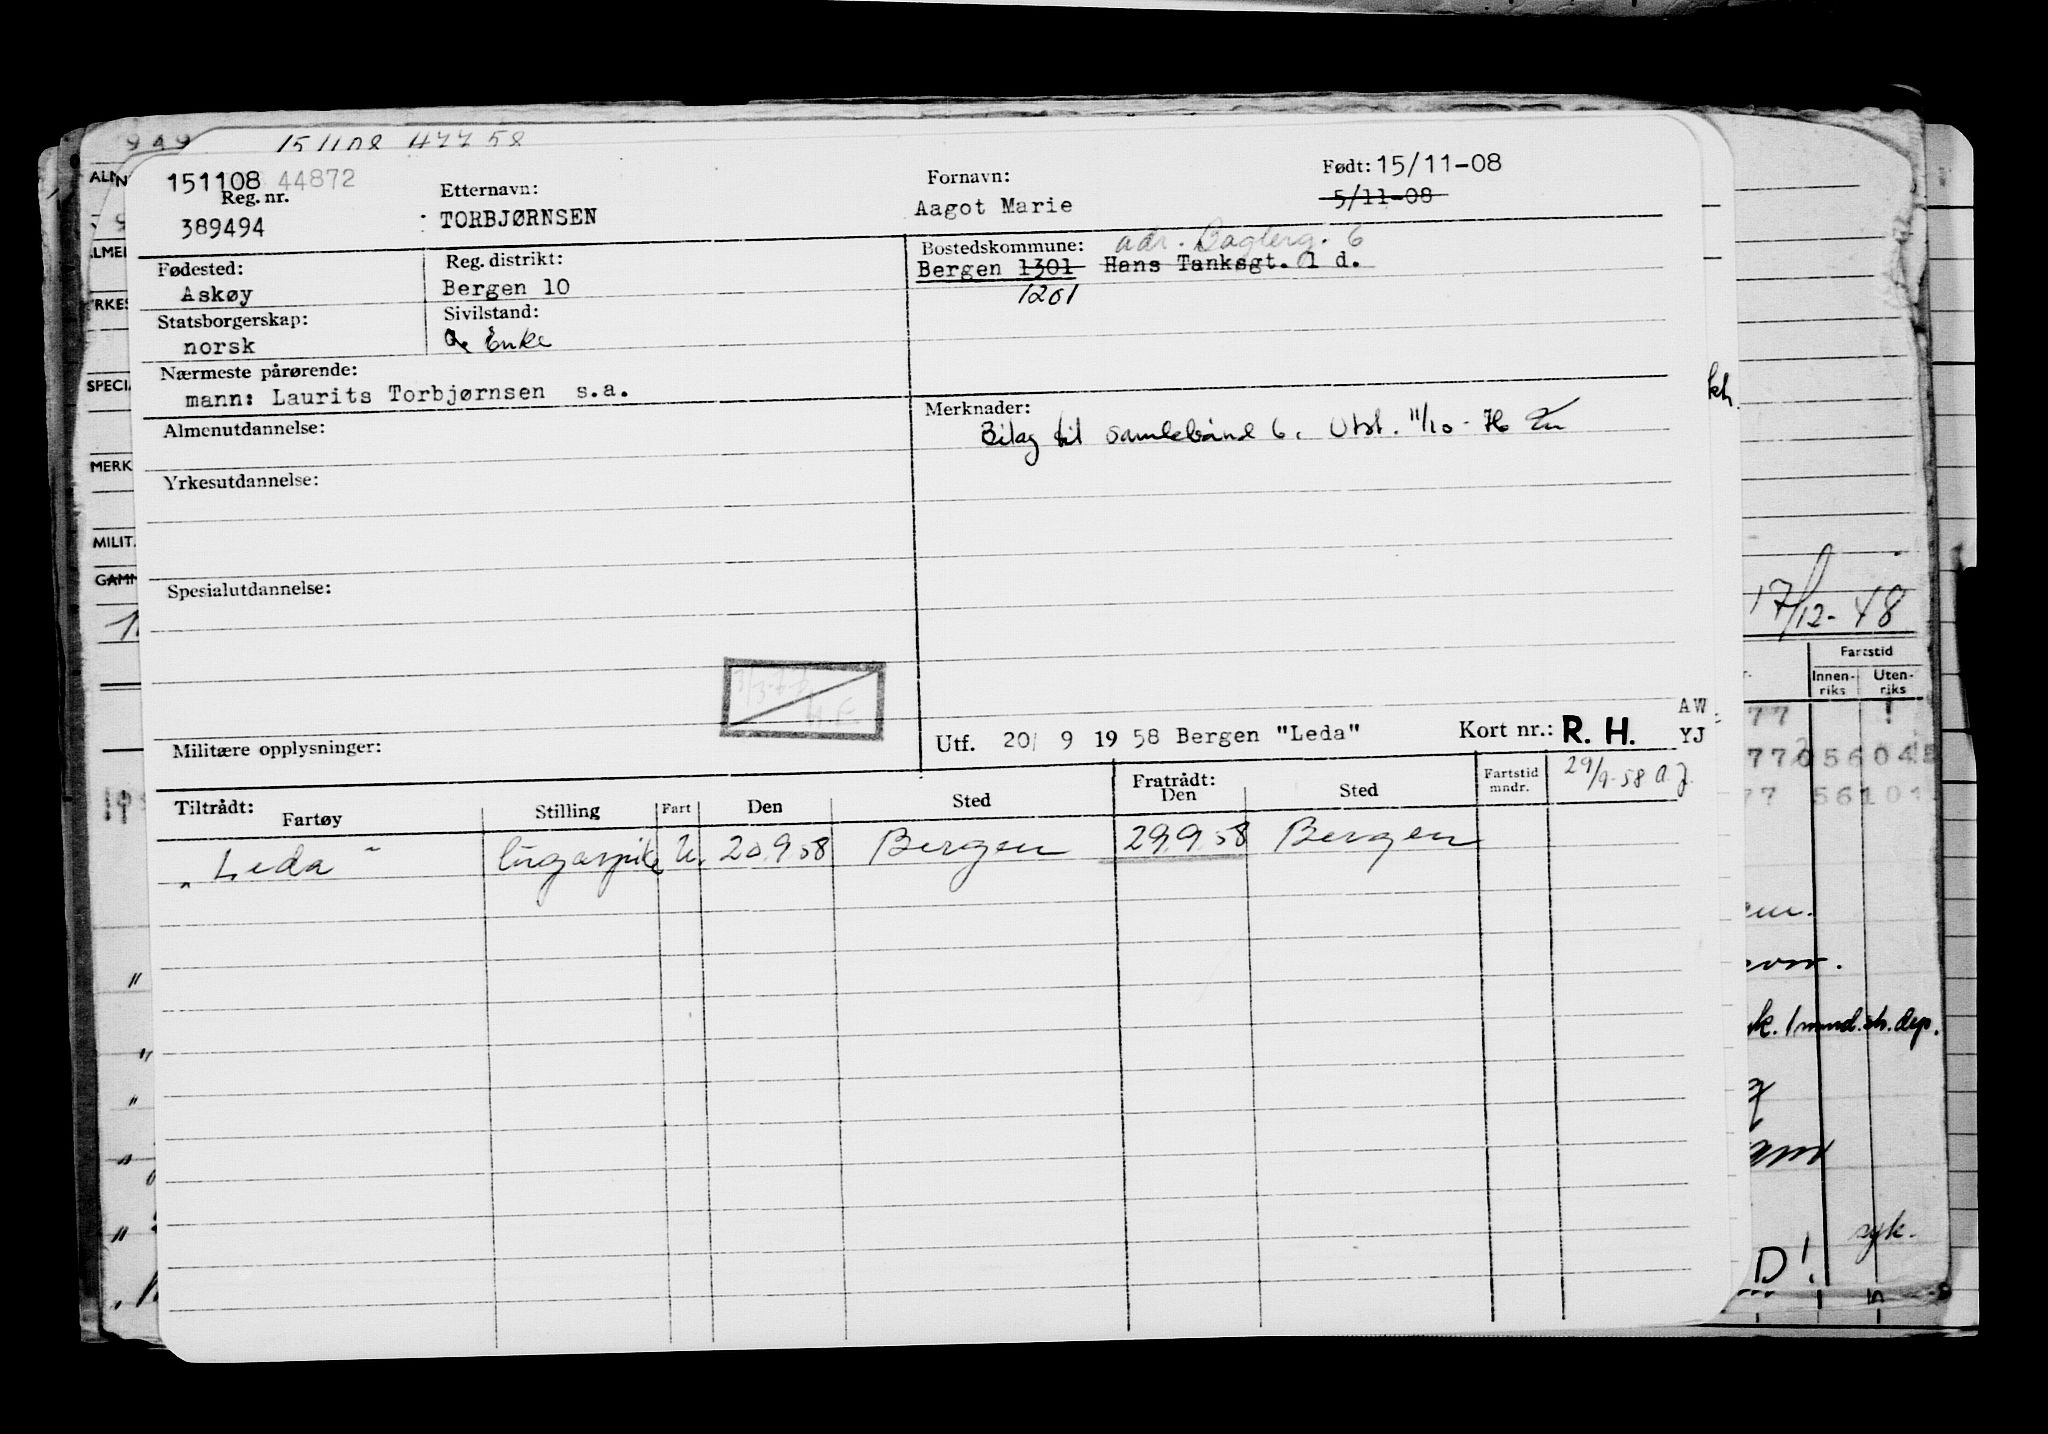 151108 47758
151108 44872
Reg. nr.
389494
Etternavn:
TORBJØRNSEN
Fornavn:
Aagot Marie
Født: 15/11-08
5/11-08
Fødested:
Askøy
Reg. distrikt:
Bergen 10
Bostedskommune: adr. 6
Bergen 1301 Hans Tanksgt. 1 d.
1201
Statsborgerskap:
norsk
Sivilstand:
Enke
Nærmeste pårørende:
mann: Laurits Torbjørnsen s.a.
Almenutdannelse:
Merknader:
Bilag til samlebånd 6. Utst. 11/10-76
Yrkesutdannelse:
Spesialutdannelse:
Militære opplysninger:
Utf. 20/ 9 19 58 Bergen "Leda"
Kort nr.: R. H.
AW
YJ
Tiltrådt:
Fartøy
Stilling
Fart
Den
Sted
Fratrådt:
Den
Sted
Fartstid
mndr.
29/9-58 A.J.
"Leda" lugarpike U. 20.9.58 Bergen 29.9.58 Bergen
17/12-48
Fartstid
Innen-
riks
Uten-
riks
77
syk.
D!